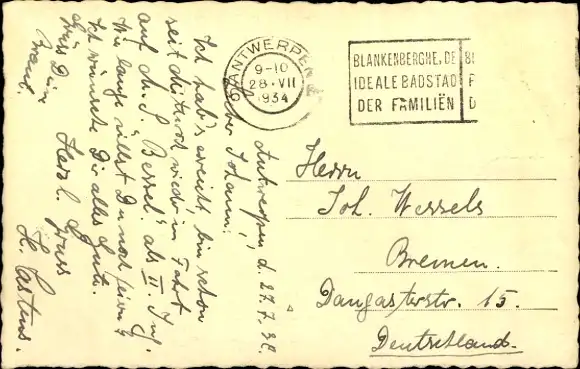 Antwerpen, d. 27.7.34.
Lieber Johann:
Ich hab's erreicht, bin schon
seit wieder in Fahrt
auf dr. S. Bessel" als II. Ing.
Wie lange willst Du noch feiern?
Ich wünsche Dir alles Gute.
Grüss Deine Herzl. Gruss
Braut. H. Carstens.
ANTWERPEN
9-10
28·VII
1934
BLANKENBERGHE, DE
IDEALE BADSTAD
DER FAMILIËN
Herrn
Joh. Wessels
Bremen.
Dangasterstr. 15.
Deutschland.